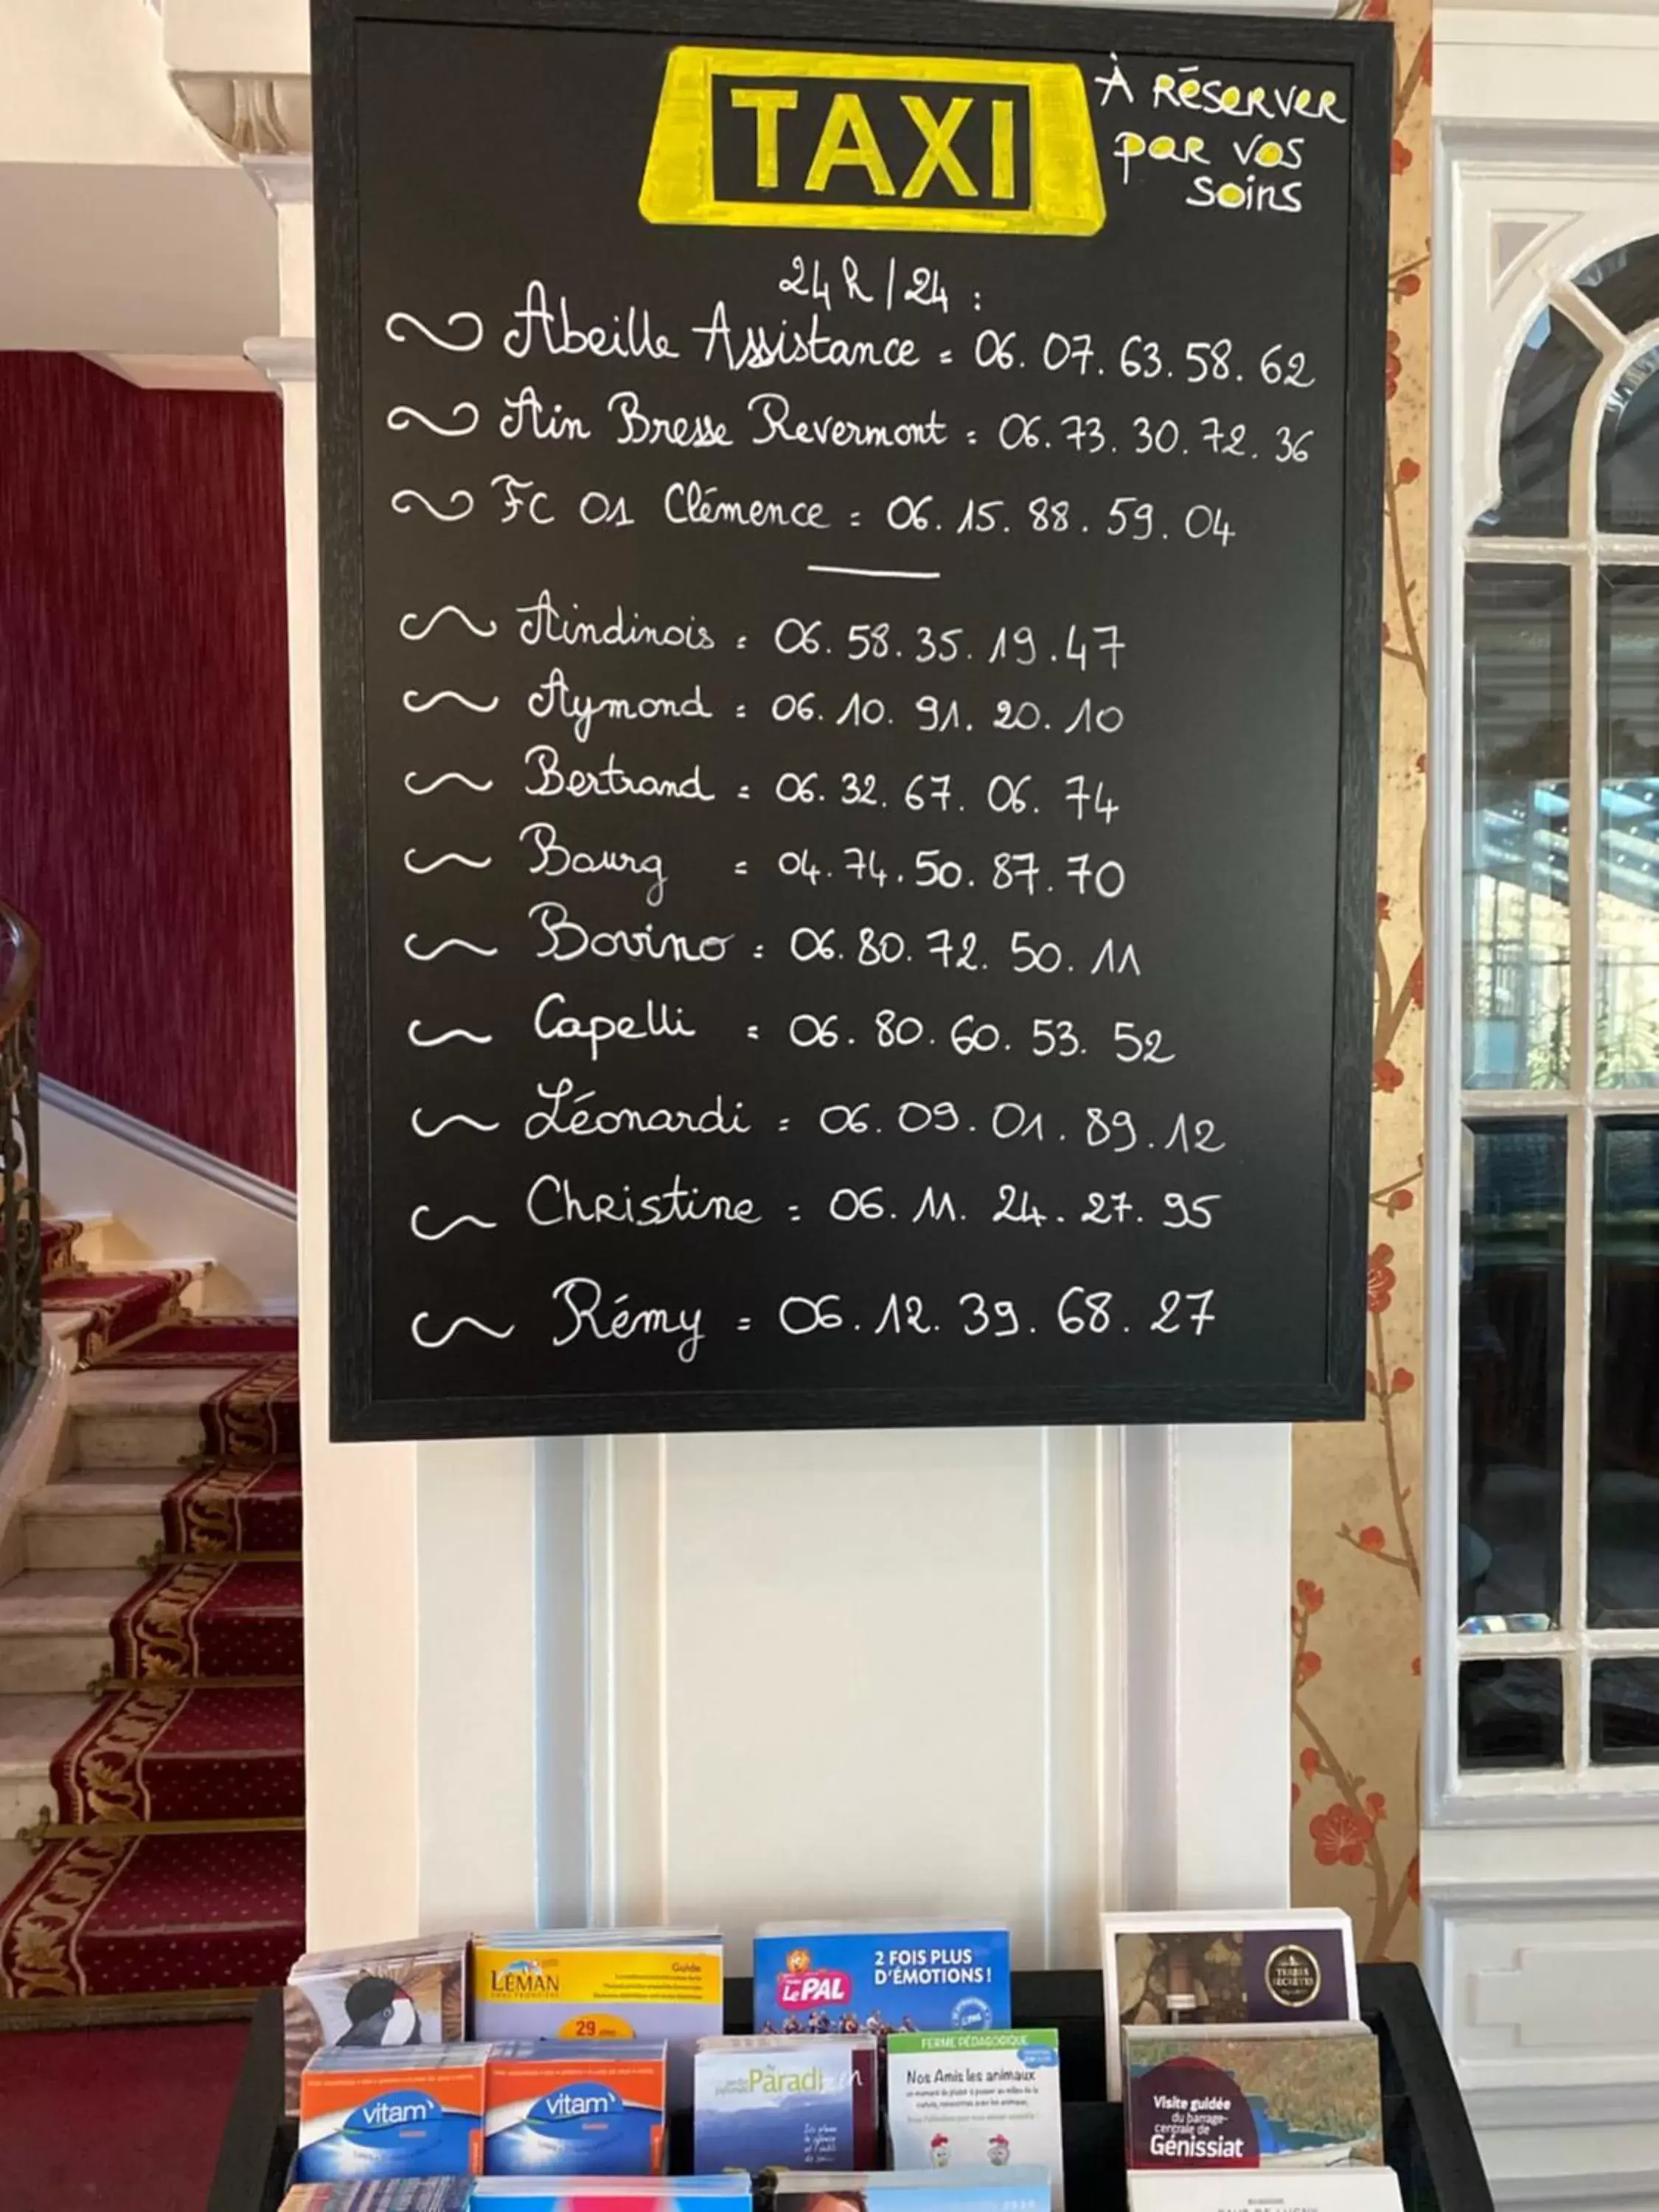 TAXI
À RÉSERVER
par vos
soins
24h/24 :
Abeille Assistance = 06.07.63.58.62
Ain Bresse Revermont = 06.73.30.72.36
FC 01 Clémence = 06.15.88.59.04
Aindinois = 06.58.35.19.47
Aymond = 06.10.91.20.10
Bertrand = 06.32.67.06.74
Bourg = 04.74.50.87.70
Bovino = 06.80.72.50.11
Capelli = 06.80.60.53.52
Léonardi = 06.09.01.89.12
Christine = 06.11.24.27.95
Rémy = 06.12.39.68.27
LÉMAN
Guide
29
LE PAL
2 FOIS PLUS
D'ÉMOTIONS !
TERRES
SECRÈTES
vitam'
vitam'
Paradizen
FERME PÉDAGOGIQUE
Nos Amis les animaux
Visite guidée
du barrage-
centrale de
Génissiat